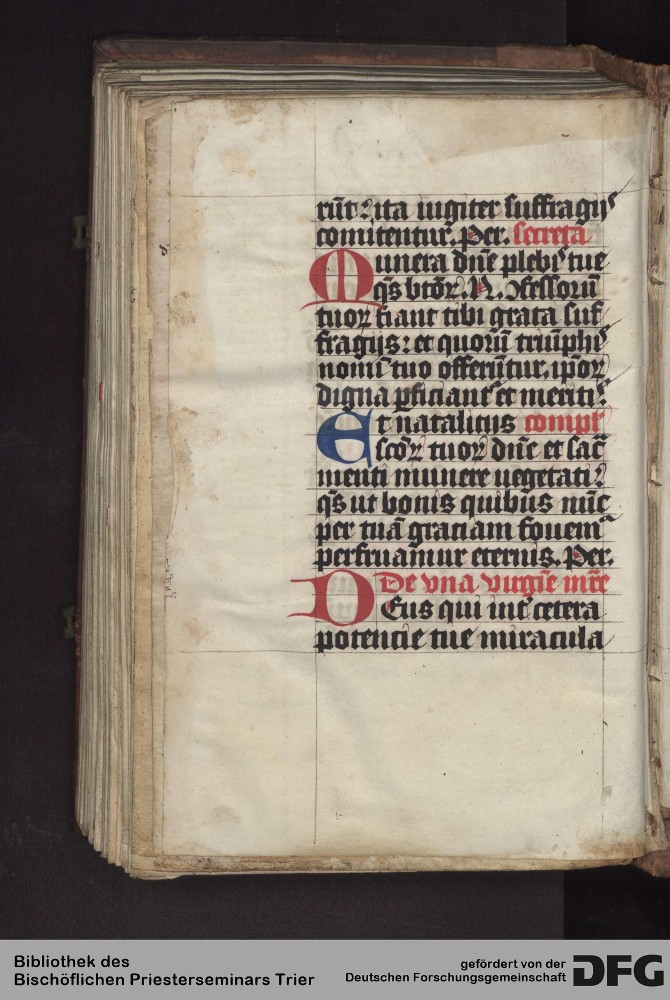 rūt: ita iugiter suffragijs
comitentur. Per. secreta
Munera dn̄e plebis tue
qs̄ btōꝝ. N. ꝯfessorū
tuoꝝ fiant tibi grata suf
fragijs: et quorū triūphis
nomī tuo offerūtur. ip̄oꝝ
digna ꝑficiant et meritis.
compl̄
Et natalitijs
scōꝝ tuoꝝ dn̄e et sac̄
menti munere uegetati:
qs̄ ut bonis quibus nūc
per tuā graciam fouemᷣ
perfruamur eternis. Per.
De vna virgīe mr̄e
Deus qui int̄ cetera
potencie tue miracula
Bibliothek des
Bischöflichen Priesterseminars Trier
gefördert von der
Deutschen Forschungsgemeinschaft
DFG